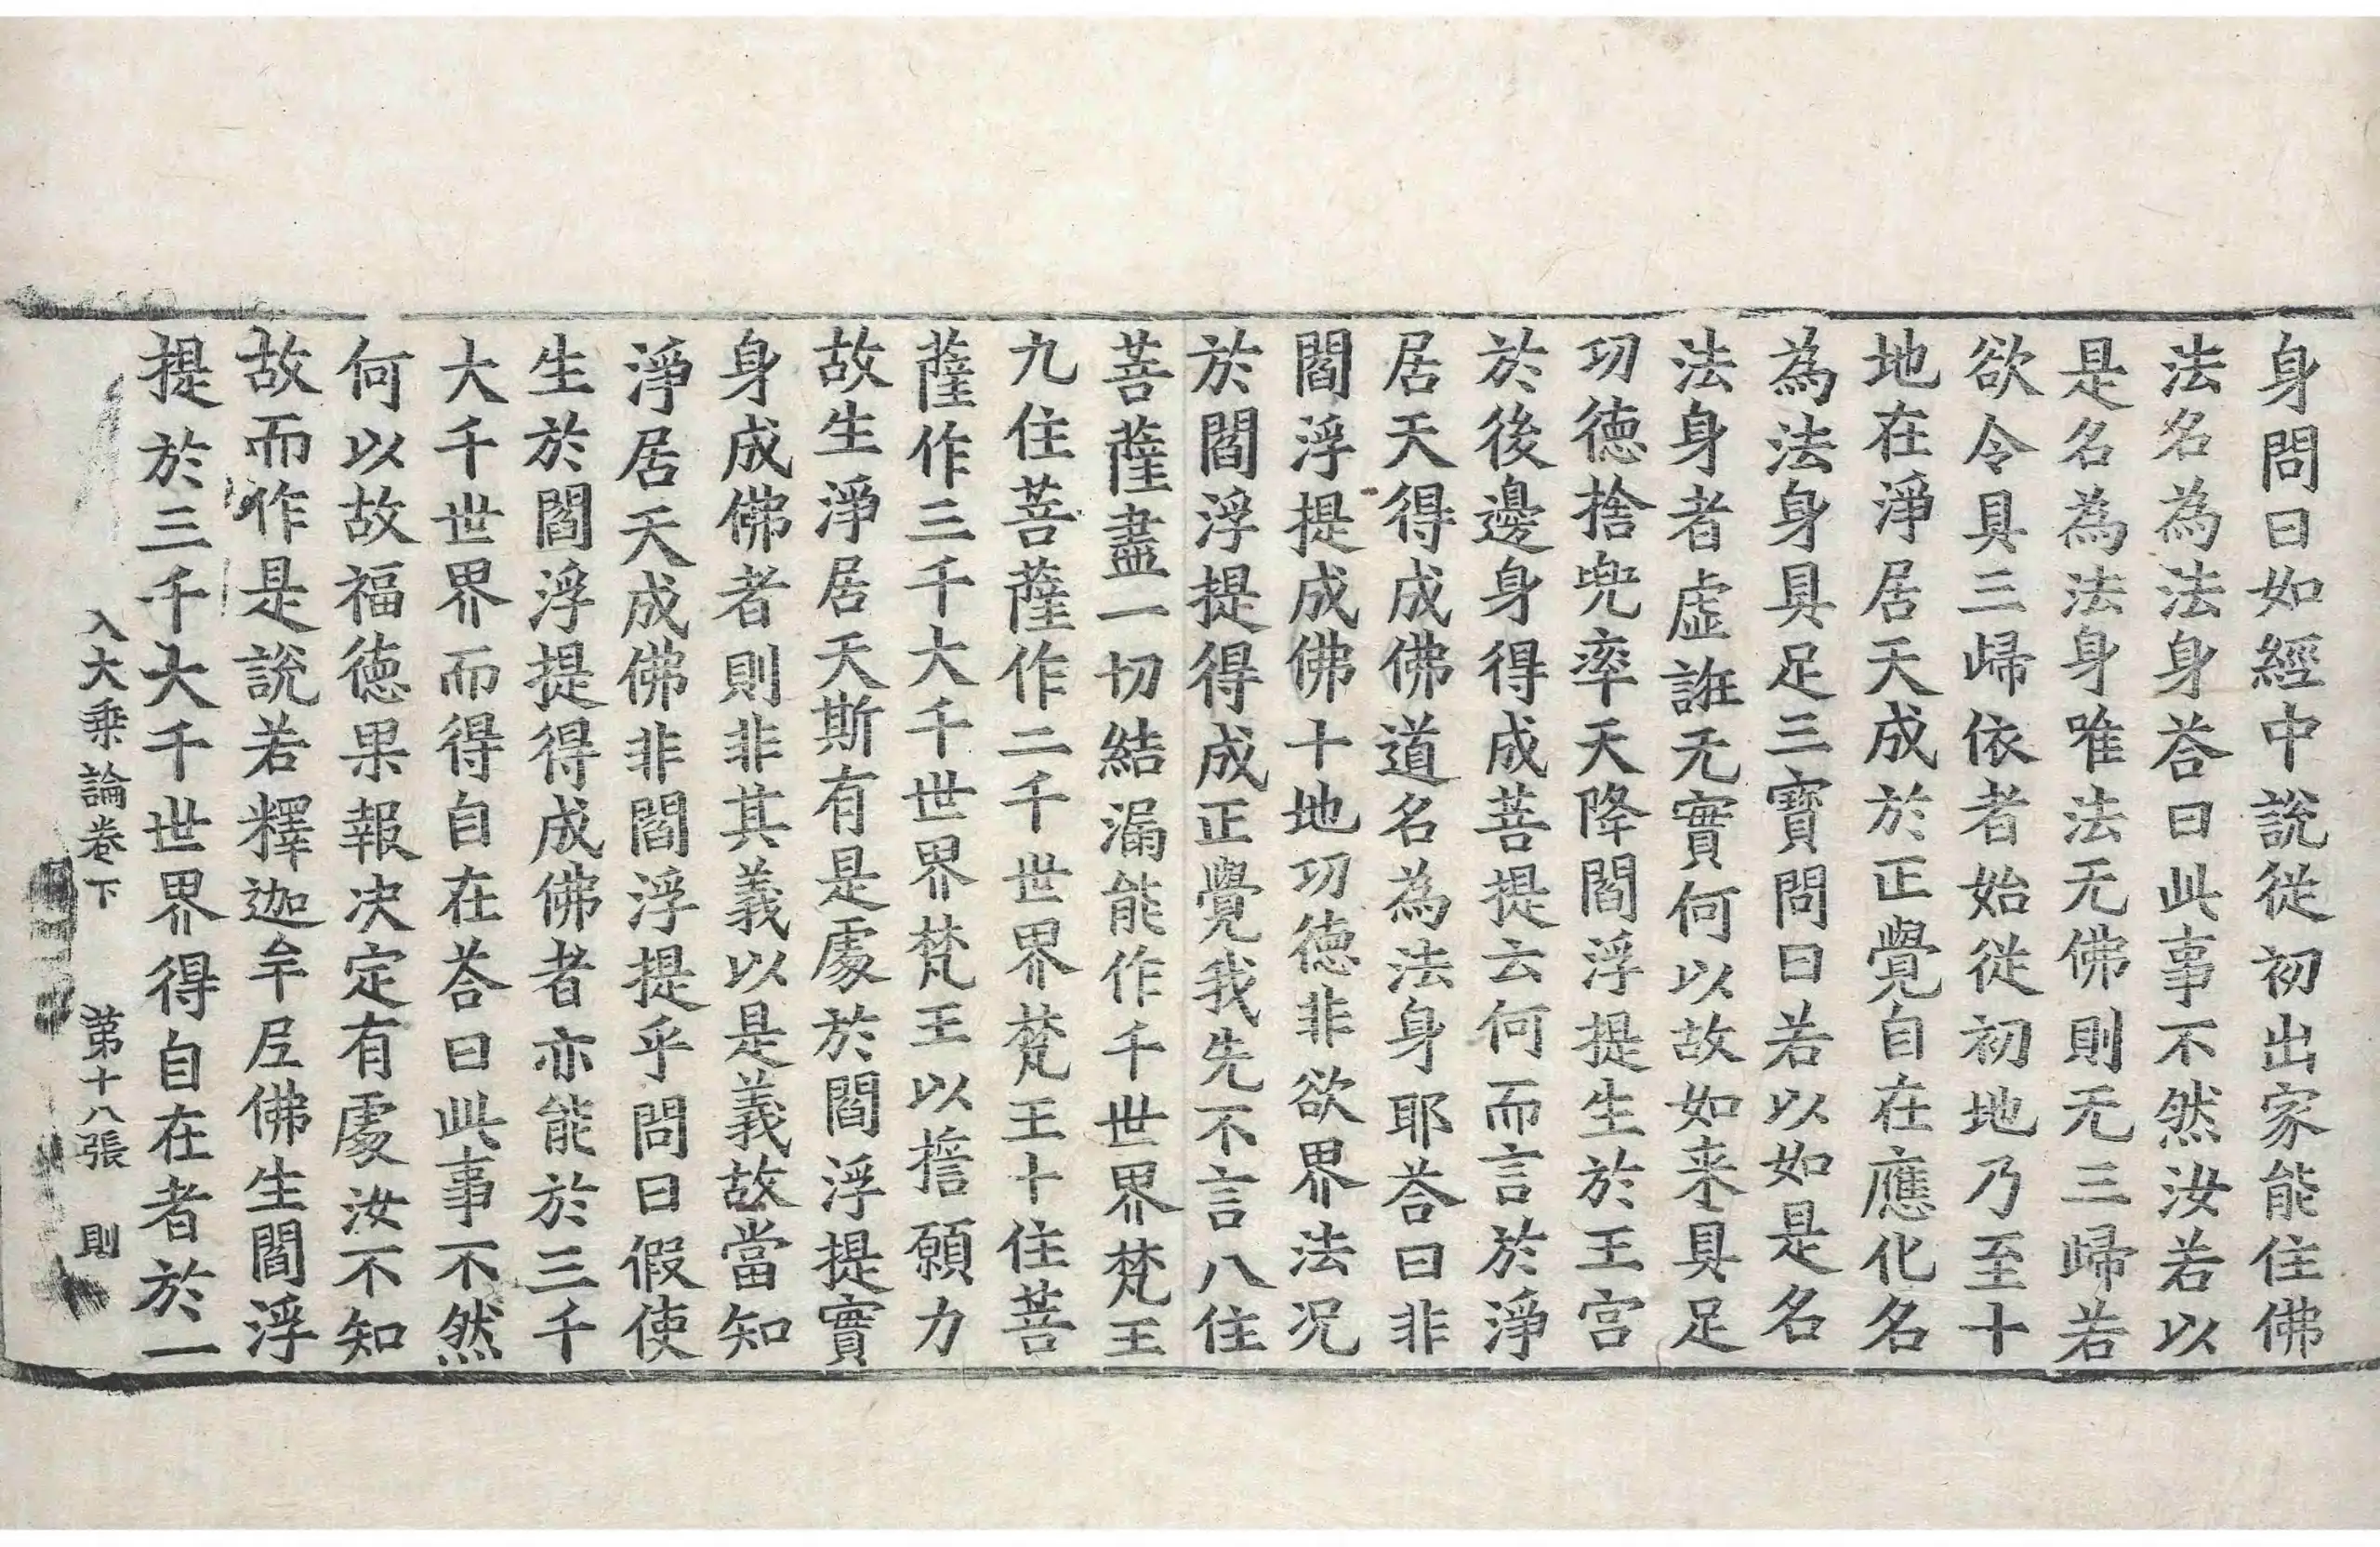 身問曰如經中說從初出家能住佛
法名為法身荅曰此事不然汝若以
是名為法身唯法无佛則无三歸若
欲令具三歸依者始從初地乃至十
地在淨居天成於正覺自在應化名
為法身具足三寶問曰若以如是名
法身者虛誑无實何以故如来具足
功德捨兜率天降閻浮提生於王宫
於後邊身得成菩提云何而言於淨
居天得成佛道名為法身耶荅曰非
閻浮提成佛十地功德非欲界法况
於閻浮提得成正覺我先不言八住
菩薩盡一切結漏能作千世界梵王
九住菩薩作二千世界梵王十住菩
薩作三千大千世界梵王以擔願力
故生淨居天斯有是處於閻浮提實
身成佛者則非其義以是義故當知
淨居天成佛非閻浮提乎問曰假使
生於閻浮提得成佛者亦能於三千
大千世界而得自在荅曰此事不然
何以故福德果報決定有處汝不知
故而作是說若釋迦牟尼佛生閻浮
提於三千大千世界得自在者於一
入大乘論卷下 第十八張 則